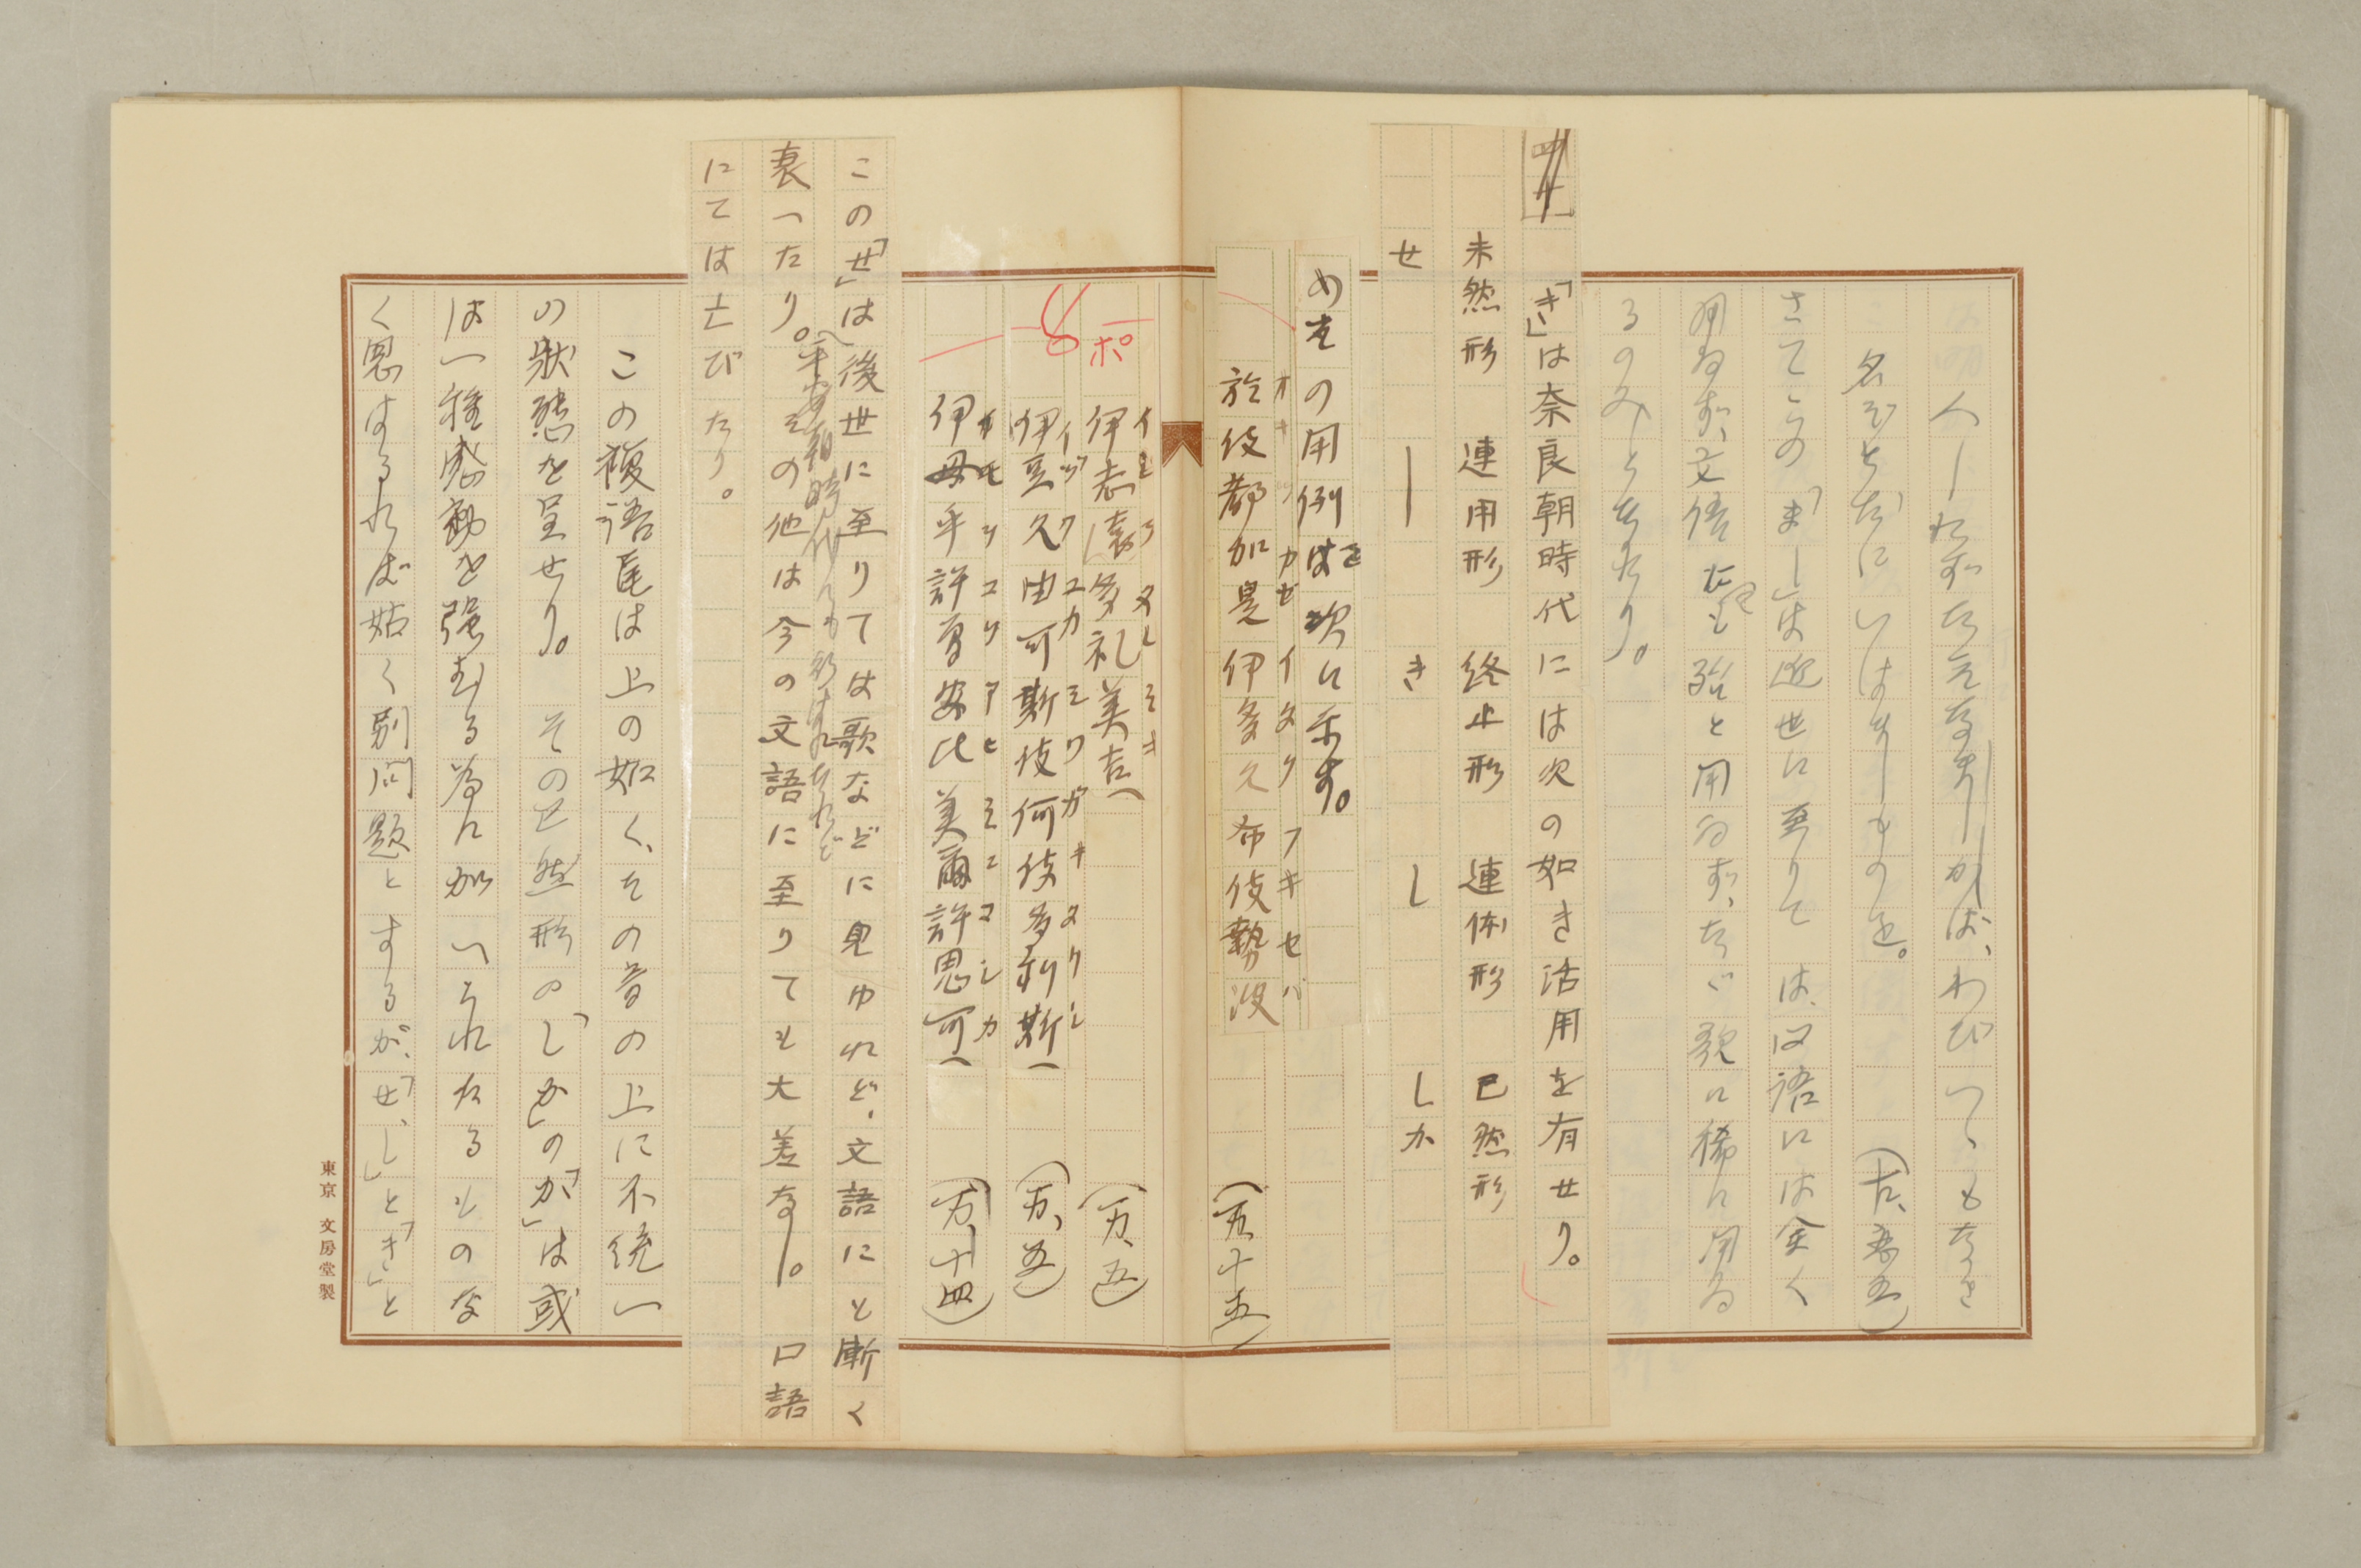 人しれずたえなましかば、わびつゝもなき
名ぞとだにいはましものを。 (古、恋五)
さてこの「まし」は近世に至りては、口語には全く
用ゐず、文語にても殆と用ゐず、たゞ歌に稀に用ゐ
るのみとなれり。
「き」は奈良朝時代には次の如き活用を有せり。
未然形 連用形 終止形 連体形 已然形
せ ー き し しか
の用例を次に示す。
オキツカゼ イタクフキセバ
於伎都加是 伊多久布伎勢波 (万、十五)
ポ
伊志遠多礼美吉 (万、五)
イヅクユカ
伊豆久由可斯伎何伎多利斯 (万、五)
伊母乎許曽安比美爾許思可 (万、十四)
この「せ」は後世に至りては歌などに見ゆれど、文語にと漸く
衰へたり。その他は今の文語に至りても大差なし。口語
平安朝時代
にては亡びたり。
この複語尾は上の如く、その音の上に不統一
の状態を呈せり。その已然形の「しか」の「か」は或
は一種感動を強むる為に加へられたるものな
く思はるれば姑く別問題とするが、「せ、し」と「き」と
東京 文房堂製